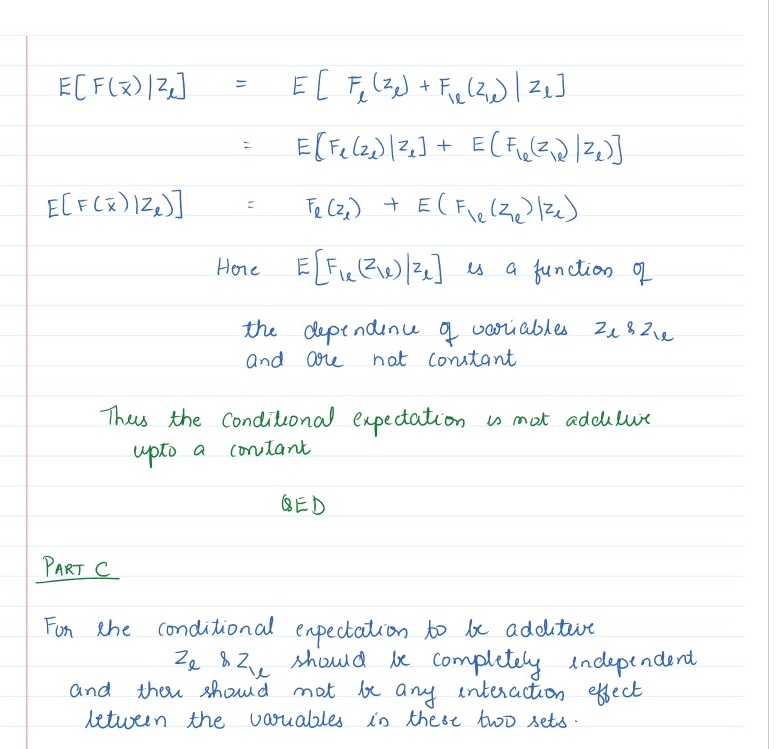 E[F(x̄)|Zₗ] = E[ Fₗ(zₗ) + F\ₗ(z\ₗ) | zₗ]
= E[Fₗ(zₗ)|zₗ] + E(F\ₗ(z\ₗ)|zₗ)]
E[F(x̄)|Zₗ)] = Fₗ(zₗ) + E(F\ₗ(z\ₗ)|zₗ)
Here E[F\ₗ(z\ₗ)|zₗ] is a function of
the dependence of variables zₗ & z\ₗ
and are not constant
Thus the conditional expectation is not additive
upto a constant
QED
PART C
For the conditional expectation to be additive
zₗ & z\ₗ should be completely independent
and there should not be any interaction effect
between the variables in these two sets.